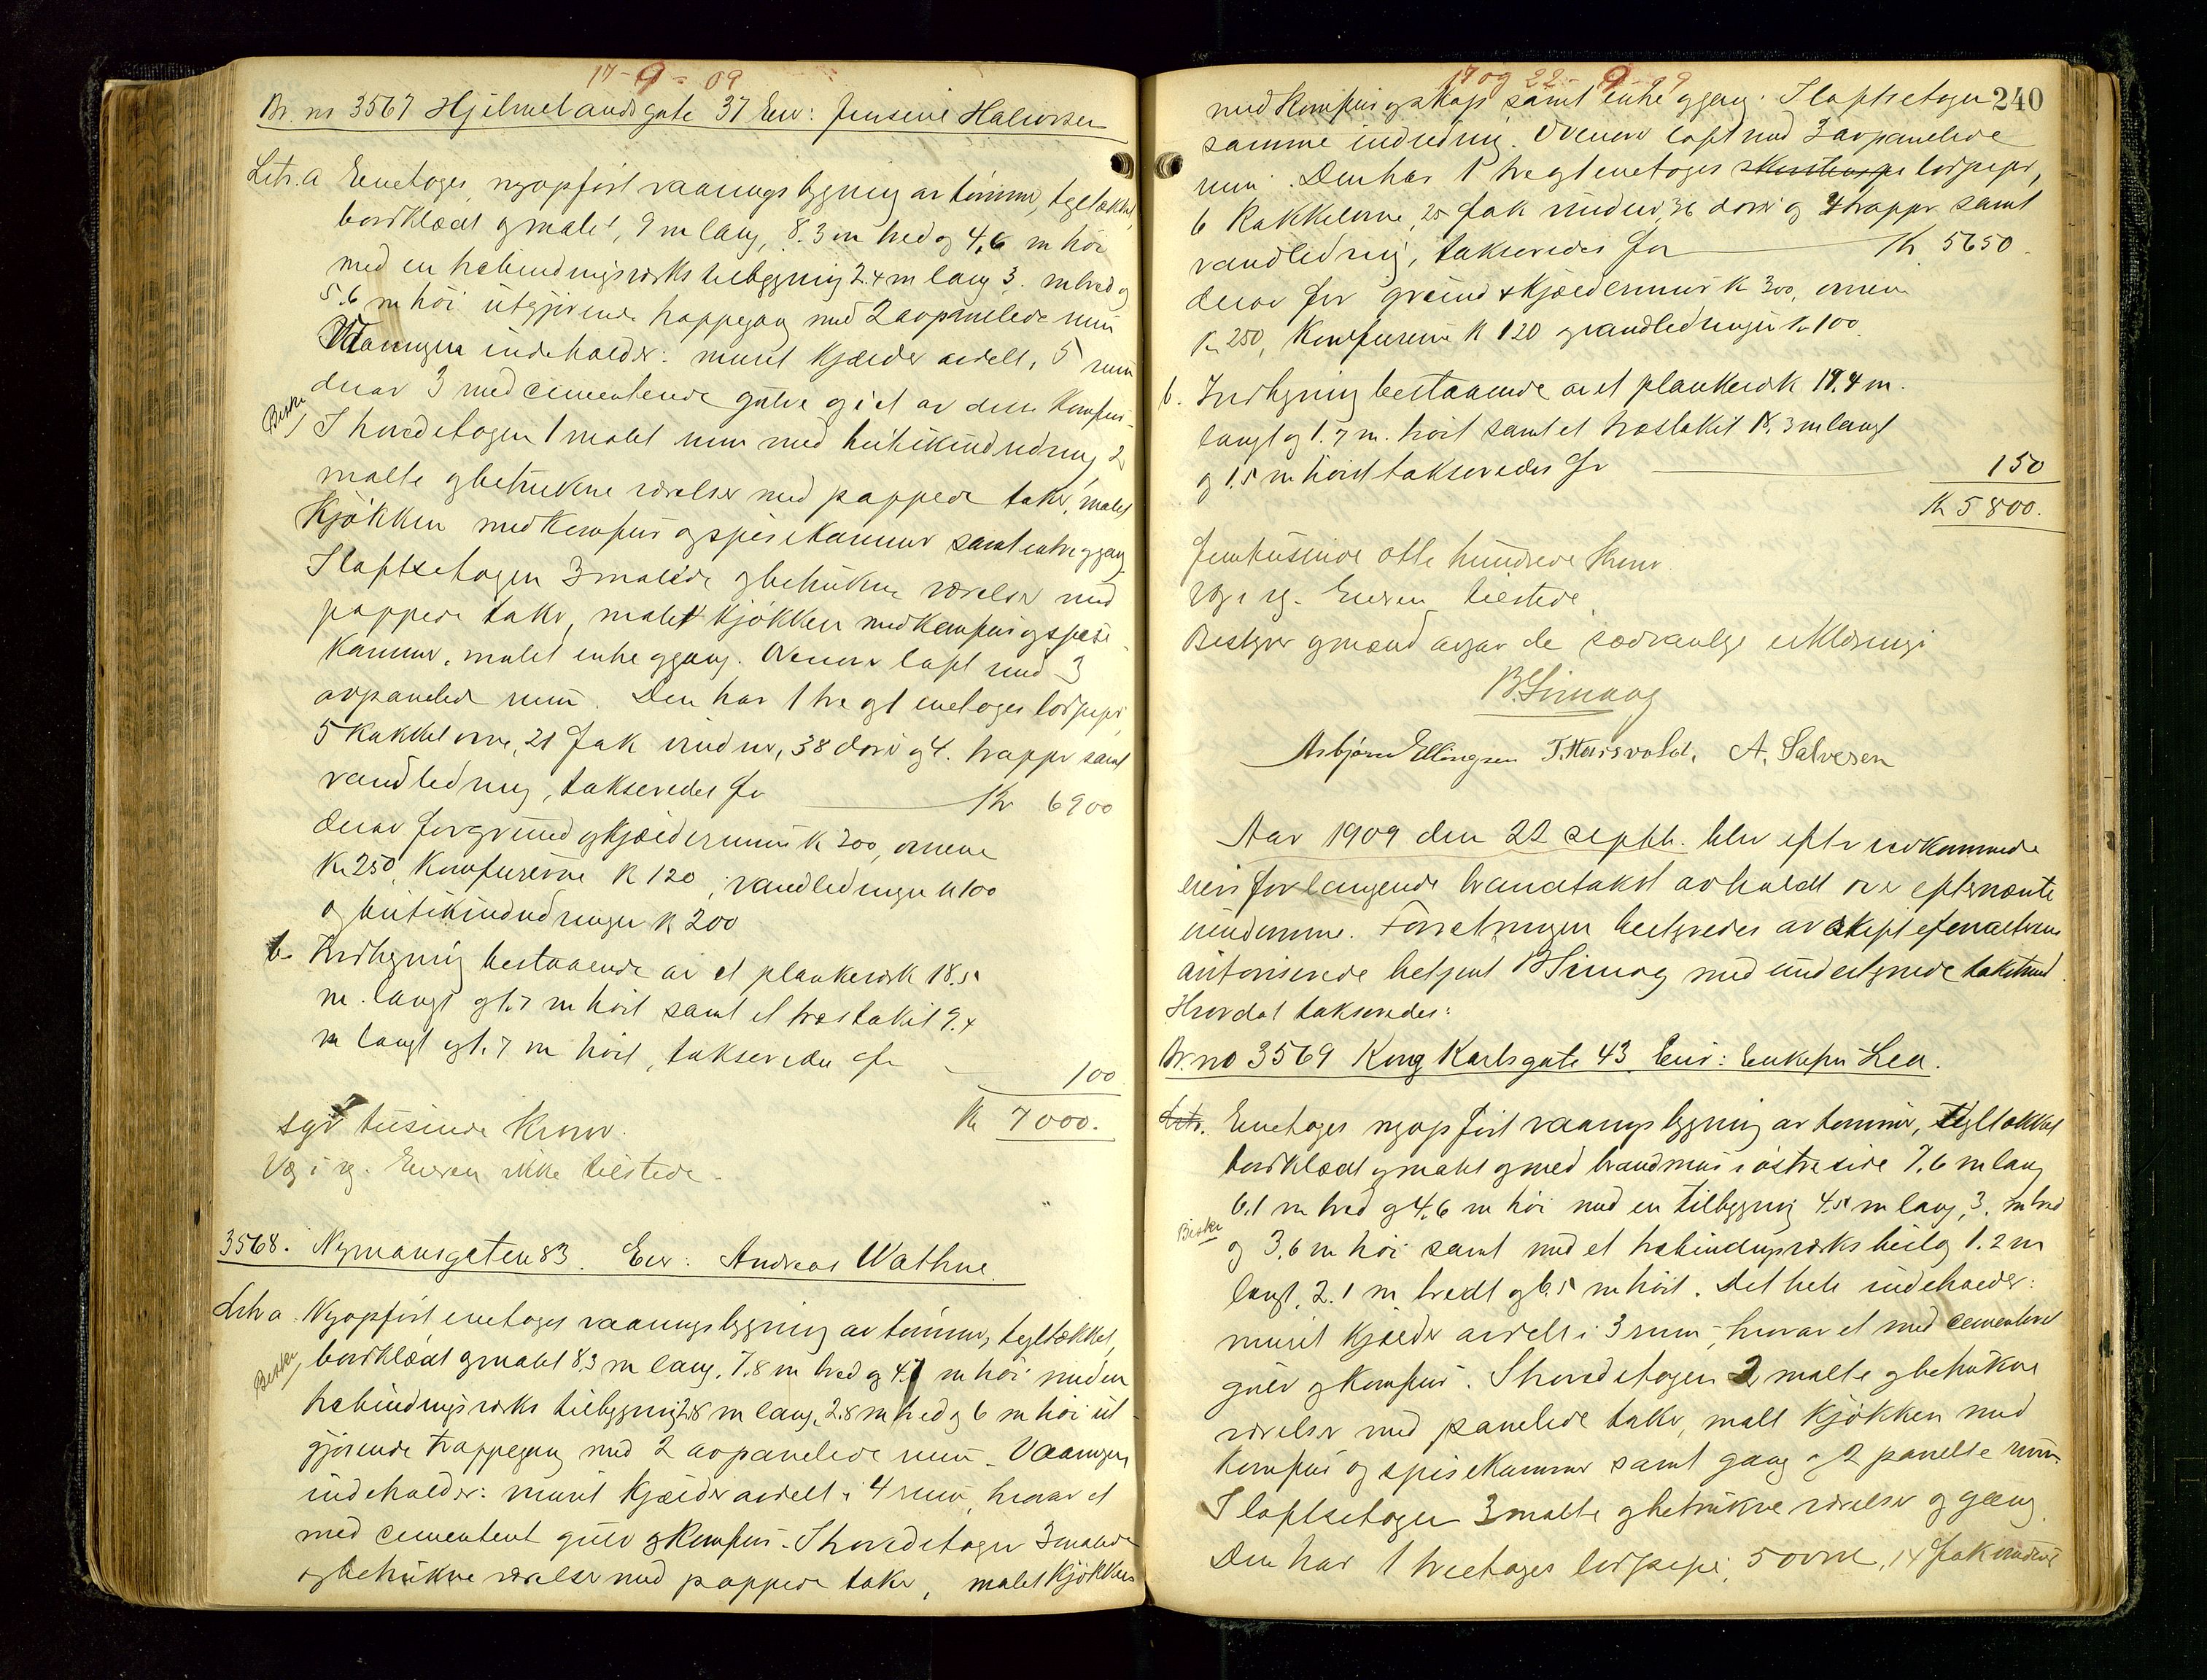 17-9-09
Br. no 3567 Hjelmelandsgate 37 Eier: Jensine Halvorsen
Litr. a Eenetages, nyopført vaaningsbygning av tømmer, teglækket,
bordklædt og malet, 9 m lang, 8.3 m bred og 4,6 m høi
med en træbindingsverks tilbygning 2.4 m lang 3. m bred og
5.6 m høi utgjørende trappegang med 2 avpanelede rum
Vaaningen indeholder: muret kjælder avdelt i 5 rum
derav 3 med cementerede gulve og i et av disse komfur.
Besku
I hovedetagen 1 malet rum med butikindredning, 2
malte og betrukne værelser med pappede taker, malet
kjøkken med komfur og spisekammer samt entre og gang
I loftsetagen 3 malede og betrukne værelser med
pappede taker, malet kjøkken med komfur og spise
kammer, malet entre og gang. Øvenover loft med 3
avpanelede rum. Den har 1 tre og 1 enetages lodpiper,
5 kakkelovne, 21 fak vinduer, 38 dører og 4. trapper samt
vandledning, takseredes for Kr 6900
derav for grund og kjældermuren K 300, ovnene
Kr. 250, Komfurerne K 120, vandledningen K 100
og butikindredningen K 200
b. Indhegning bestaaende av et plankeverk 18.5
m. langt og 1.7 m høit samt et træstakit 9.4
m langt og 1.7 m høit, takseredes for 100
Kr 7000.
syv tusinde kroner.
Vg i rg. Eieren ikke tilstede.
3568. Nymansgaten 83. Eier: Andreas Wathne.
Litr a Nyopført enetages vaaningsbygning av tømmer, tegltækket,
Besku
bordklædt og malet 8.3 m lang, 7.8 m bred og 4.7 m høi med en
træbindingsverks tilbygning 2.8 m lang, 2.8 m bred og 6 m høi ut
gjørende trappegang med 2 avpanelede rum. Vaaningen
indeholder: muret kjælder avdelt i 4 rum, hvorav et
med cementeret gulv og komfur. I hovedetagen 3 malede
og betrukne værelser med pappede taker, malet kjøkken
17 og 22-9-09
240
med komfur og skap samt entre og gang. I loftsetagen
samme indredning. Øvenover loft med 3 avpanelede
rum. Den har 1 tre og 1 enetages lodpiper,
6 Kakkelovne, 25 fak vinduer, 36 dører og 4 trapper samt
vandledning, takseredes for Kr 5650
derav for grund & kjældermur K 300, ovnene
Kr 250, Komfurerne K 120 og vandledningen Kr 100.
b. Indhegning bestaaende av et plankeverk 18.4 m.
langt og 1.7 m. høit samt et træstakit 18.3 m langt
og 1.5 m høit takseredes for 150
Kr 5800.
femtusinde otte hundrede kroner.
Vg i rg. Eieren tilstede.
Bestyrer og mænd avgav de sædvanlige erklæringer
B. Simaag
Asbjørn Ellingsen T. Haarsvold. A. Salvesen
Aar 1909 den 22 septbr. blev efter vedkommende
eiers forlangende brandtakst avholdt over efternævnte
eiendomme. Forretningen bestyredes av skiftesforvalterens
autoriserede betjent B Simaag med undertegnede takstmænd.
Hvorda takseredes:
Br. no 3569 Kong Karlsgate 43. Eier: Enkefru Lea.
Litr. Enetages nyopført vaaningsbygning av tømmer, tegltækket
bordklædt og malet og med brandmur i østre side 7.6 m lang
6.1 m bred og 4.6 m høi med en tilbygning 4.5 m lang, 3. m bred
Besku
og 3.6 m høi samt med et træbindingsverks tilbyg 1.2 m
langt, 2.1 m bredt og 6.5 m høit. Det hele indeholder:
muret kjælder avdelt i 3 rum, hvorav et med cementeret
gulv og komfur. I hovedetagen 2 malte og betrukne
værelser med panelede taker, malt kjøkken med
komfur og spisekammer samt gang og 2 panelte rum.
I loftsetagen 3 malte og betrukne værelser og gang.
Den har 1 treetages lodpipe, 5 ovne, 14 fak vinduer